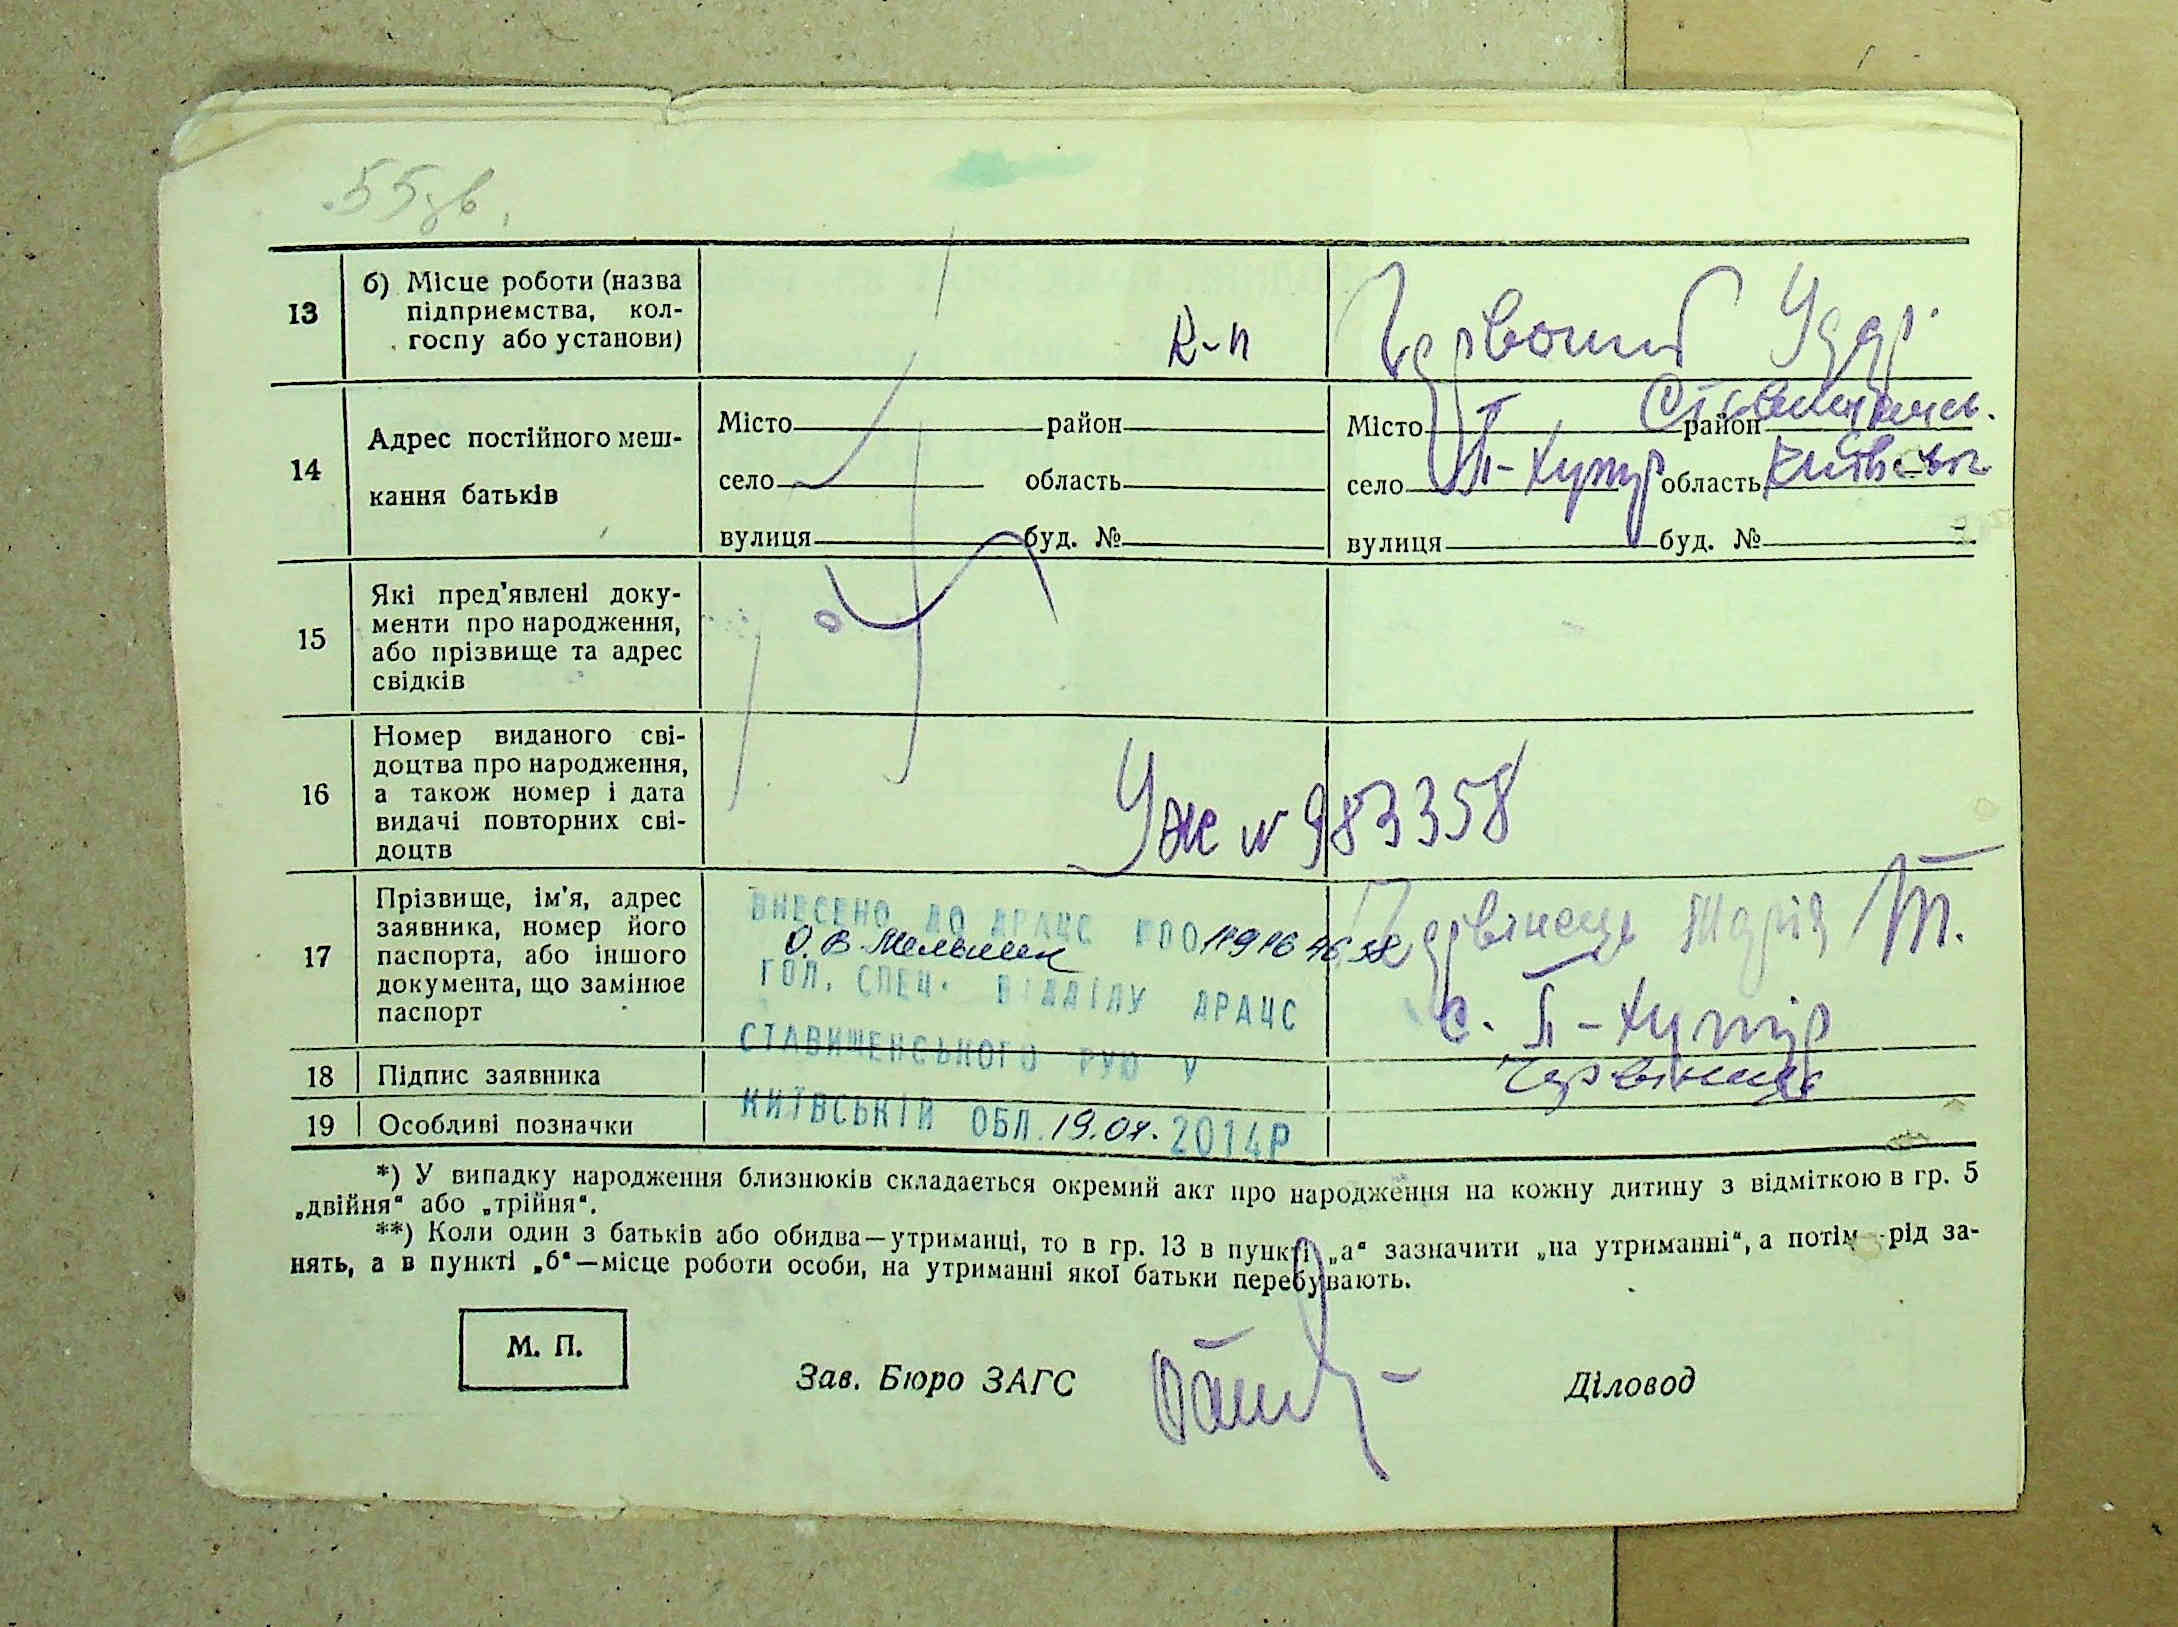 55зв.
13
б) Місце роботи (назва
підприємства, кол-
госпу або установи)
к-п
Червоний
14
Адрес постійного меш-
кання батьків
Місто район
село область
вулиця буд. №
Місто район
село П-Хутір область Київськ
вулиця буд. № -
15
Які пред'явлені доку-
менти про народження,
або прізвище та адрес
свідків
16
Номер виданого сві-
доцтва про народження,
а також номер і дата
видачі повторних сві-
доцтв
УЖ № 983358
17
Прізвище, ім'я, адрес
заявника, номер його
паспорта, або іншого
документа, що замінює
паспорт
ВНЕСЕНО ДО ДРАЦС ПЛО
О.В. Мельник
ГОЛ. СПЕЦ. ВІДДІЛУ ДРАЦС
СТАВИЩЕНСЬКОГО РУЮ У
КИЇВСЬКІЙ ОБЛ. 2014Р
Марія Т.
с. П-Хутір
18 Підпис заявника
19 Особливі позначки
*) У випадку народження близнюків складається окремий акт про народження на кожну дитину з відміткою в гр. 5
„двійня“ або „трійня“.
**) Коли один з батьків або обидва—утриманці, то в гр. 13 в пункті „а“ зазначити „на утриманні“, а потім рід за-
нять, а в пункті „б“—місце роботи особи, на утриманні якої батьки перебувають.
М. П.
Зав. Бюро ЗАГС
Діловод